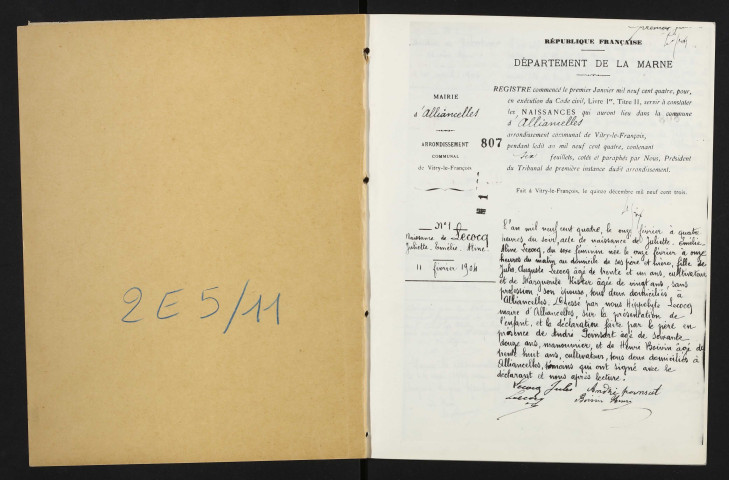 2 E 5/11
RÉPUBLIQUE FRANÇAISE
DÉPARTEMENT DE LA MARNE
MAIRIE
d'Alliancelles
ARRONDISSEMENT
COMMUNAL
de Vitry-le-François
807
REGISTRE commencé le premier Janvier mil neuf cent quatre, pour,
en exécution du Code civil, Livre Ier, Titre II, servir à constater
les NAISSANCES qui auront lieu dans la commune
d'Alliancelles
arrondissement communal de Vitry-le-François,
pendant ledit an mil neuf cent quatre, contenant
six feuillets, cotés et paraphés par Nous, Président
du Tribunal de première instance dudit arrondissement.
Fait à Vitry-le-François, le quinze décembre mil neuf cent trois.
N° 1
Naissance de Lecocq
Juliette Emélie Aline
11 février 1904
L'an mil neuf cent quatre, le onze février à quatre
heures du soir, acte de naissance de Juliette Emélie
Aline Lecocq, du sexe féminin née le onze février à onze
heures du matin au domicile de ses père et mère, fille de
Jules Auguste Lecocq âgé de trente et un ans, cultivateur
et de Marguerite âgée de vingt ans, sans
profession son épouse, tous deux domiciliés à
Alliancelles, Dressé par nous Hippolyte Lecocq
maire d'Alliancelles, sur la présentation de
l'enfant, et la déclaration faite par le père en
présence de André Ponsort âgé de soixante
douze ans, manouvrier, et de Henri Boivin âgé de
trente huit ans, cultivateur, tous deux domiciliés à
Alliancelles, témoins qui ont signé avec le
déclarant et nous après lecture.
Lecocq Jules André ponsort
Lecocq Boivin Henri